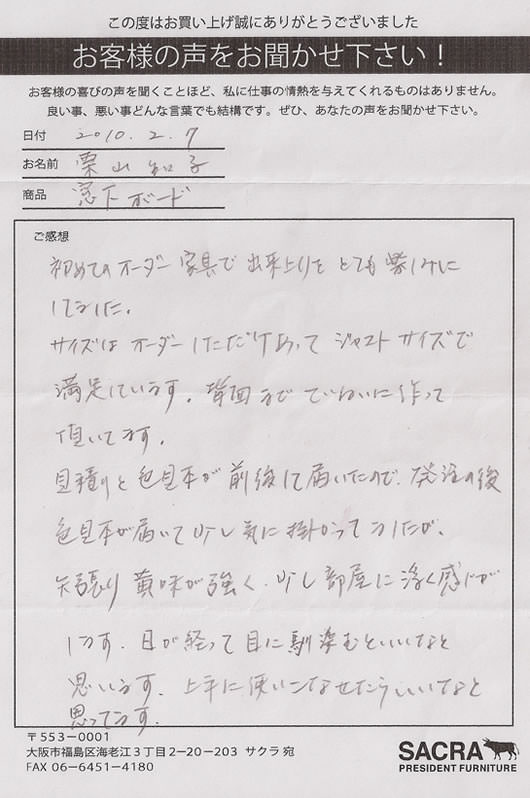 この度はお買い上げ誠にありがとうございました
お客様の声をお聞かせ下さい！
お客様の喜びの声を聞くことほど、私に仕事の情熱を与えてくれるものはありません。
良い事、悪い事どんな言葉でも結構です。ぜひ、あなたの声をお聞かせ下さい。
日付 2010.2.7
お名前 栗山知子
商品 窓下ボード
ご感想
初めてのオーダー家具で出来上りをとても楽しみに
してました。
サイズはオーダーしただけあってジャストサイズで
満足しています。背面までていねいに作って
頂いてます。
見積りと色見本が前後して届いたので、発注の後
色見本が届いて少し気に掛かってましたが、
矢張り黄味が強く、少し部屋に浮く感じが
します。日が経って目に馴染むといいなと
思います。上手に使いこなせたらいいなと
思ってます。
〒553-0001
大阪市福島区海老江3丁目2-20-203 サクラ宛
FAX 06-6451-4180
SACRA
PRESIDENT FURNITURE